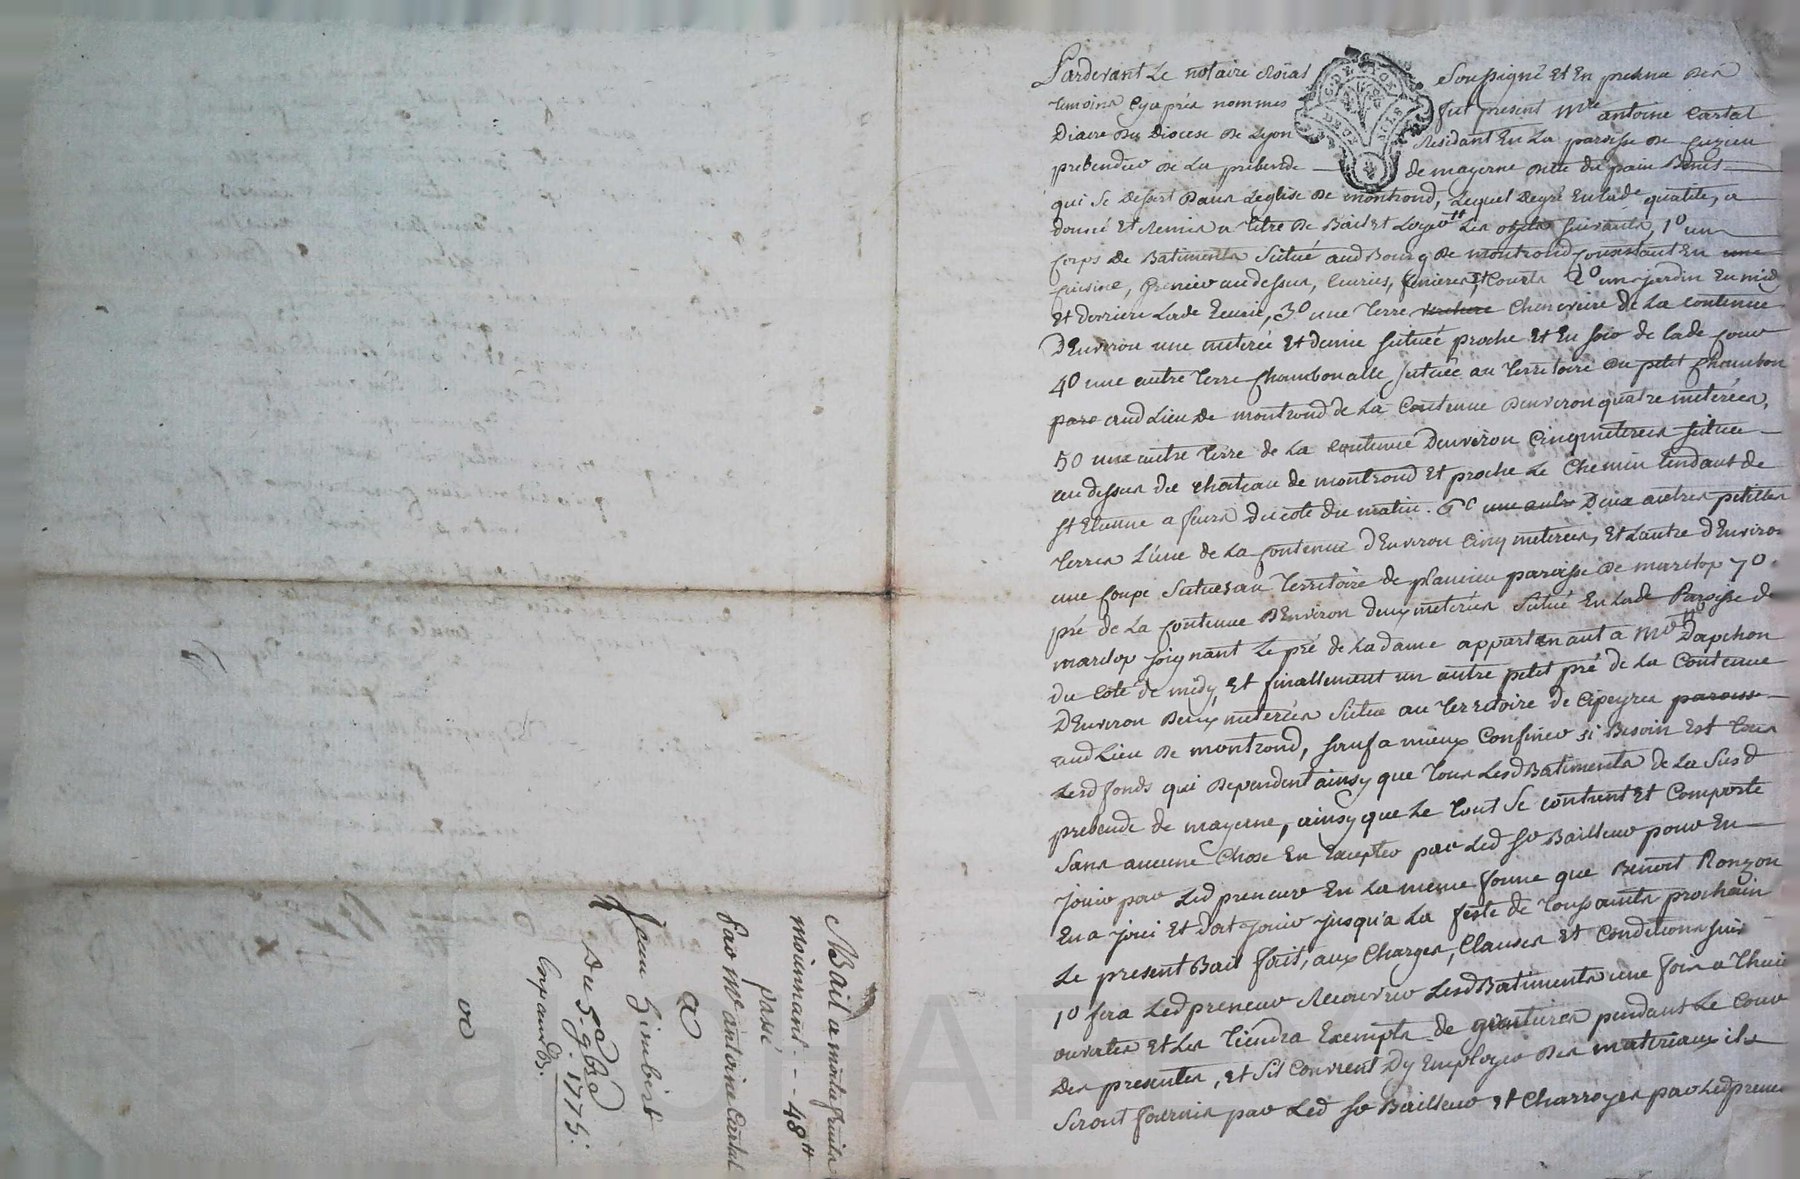 Pardevant Le notaire Roïal soussigné Et En presence des
temoins Cyaprés nommés fut present Mre antoine Cartal
Diacre du Diocese de Lyon Residant En La paroisse de Cuzieu
prebendier de La prebende de mayerne ditte du pain Benit
qui Se Dessert Dans Leglise de montrond, Lequel De gré En lade qualité, a
donné Et Remis a titre de Bail et Loyer Les objets suivants, 1º un
Corps de Batiments Situé aud Bourg de montrond Consistant En une
Cuisine, Grenier au dessus, Ecuries, fenieres, Et Cours 2º un jardin En midy
Et derriere Lade Ecurie, 3º une terre Cheneviere de La Contenue
D'Environ une meterée Et demie Situéé proche Et En soir de lade Cour
4º une autre terre Chambonalle Située au territoire du petit Chambon
aud Lieu de montrond de La Contenue Denviron quatre meterées,
5º une autre terre de La Contenue Denviron Cinq meterées Située
au dessus du chateau de montrond Et proche Le Chemin tendant de
St Etienne a feurs du coté du matin. 6º une autre Deux autres petittes
terres L'une de La Contenue d'Environ Cinq meterées, Et Lautre d'Environ
une Coupe Situées au territoire de plancieu paroisse de marclop 7º
pré de La Contenue D'Environ deux meterées Situé En lade Paroisse de
marclop joignant Le pré de La dame appartenant a Mgr Dapchon
du Coté de midy, Et finallement un autre petit pré de La Contenue
D'Environ Deux meterées Situé au territoire de Cipeyres paroisse
aud Lieu de montrond, sauf a mieux Confiner si Besoin Est tous
Lesd fonds qui Dependent ainsy que tous Lesd Batiments de La Susd
prebende de mayerne, ainsy que Le tout Se Contient Et Comporte
Sans aucune Chose En Excepter par Led Sr Bailleur pour En
jouir par Led preneur En La meme forme que Benoit Ronzon
En a joui Et doit jouir jusqu'a La feste de toussaints prochain
Le present Bail fait, aux Charges, Clauses Et Conditions suiv
1º fera Led preneur Recouvrir Lesd Batiments une fois a thuile
ouvertes Et Les tiendra Exempts de goutieres pendant Le Cour
Des presentes, Et S'il Convient D'y Employer Des matériaux ils
Seront fournis par Led Sr Bailleur Et Charroyés par Led preneu
Bail a moitié fruits
moiennant - - - 48tt
passé
Par Mr antoine Cartal
a
Jean Gimbert
Du 5 9bre 1775.